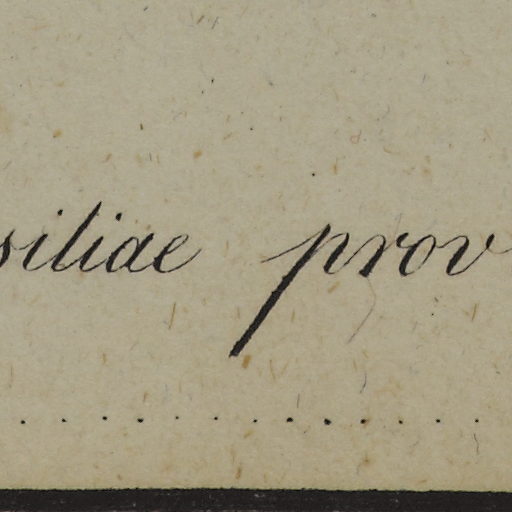 siliae prov